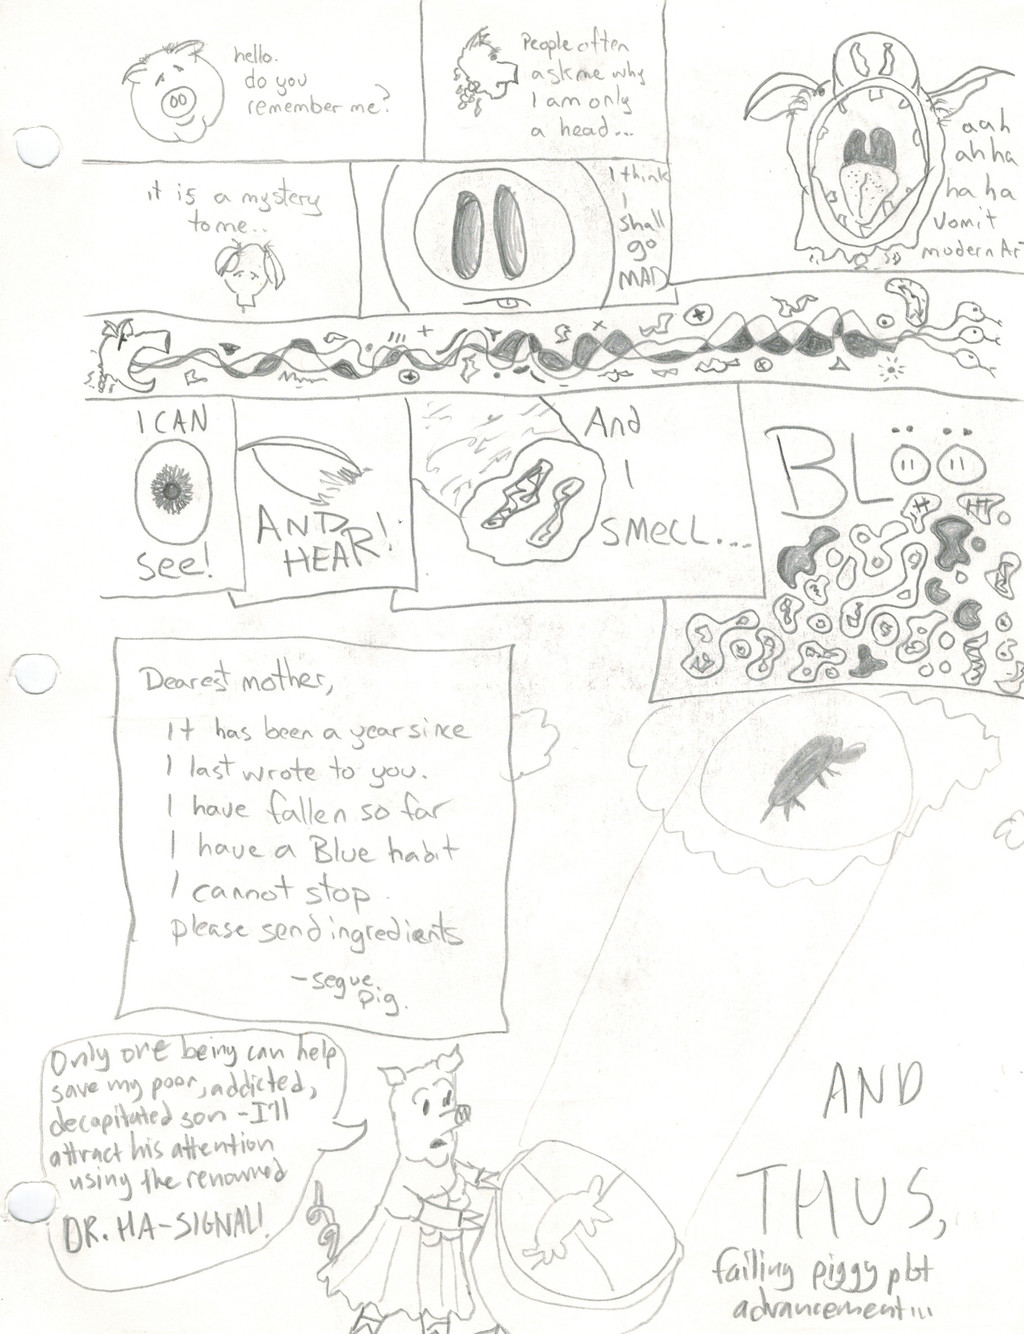 hello.
do you
remember me?
People often
ask me why
I am only
a head...
aah
ah ha
ha ha
vomit
modern Art
it is a mystery
to me..
I think
I
shall
go
MAD
I CAN
see!
AND
HEAR!
And
I
SMELL...
BLÖÖ
Dearest mother,
It has been a year since
I last wrote to you.
I have fallen so far
I have a Blue habit
I cannot stop.
please send ingredients
- segue
pig.
Only one being can help
save my poor, addicted,
decapitated son - I'll
attract his attention
using the renowned
DR. HA-SIGNAL!
AND
THUS,
failing piggy plot
advancement...